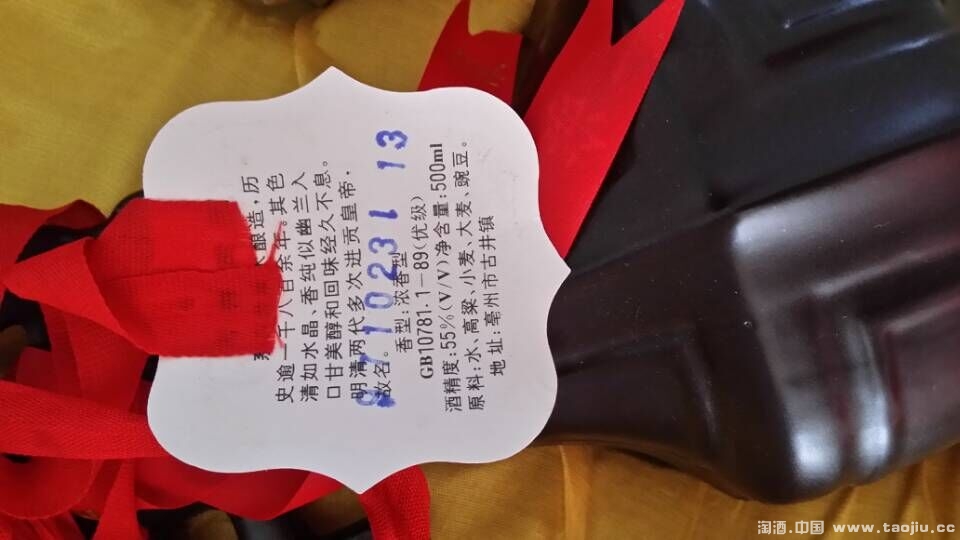 酿造,历
史逾一千八百余年。其色
清如水晶、香纯似幽兰入
口甘美醇和回味经久不息。
明清两代多次进贡皇帝,
故名。
971023 1 13
香型:浓香型
GB10781.1-89(优级)
酒精度:55%(V/V)净含量:500ml
原料:水、高粱、小麦、大麦、豌豆。
地址:亳州市古井镇
淘酒.中国 www.taojiu.cc